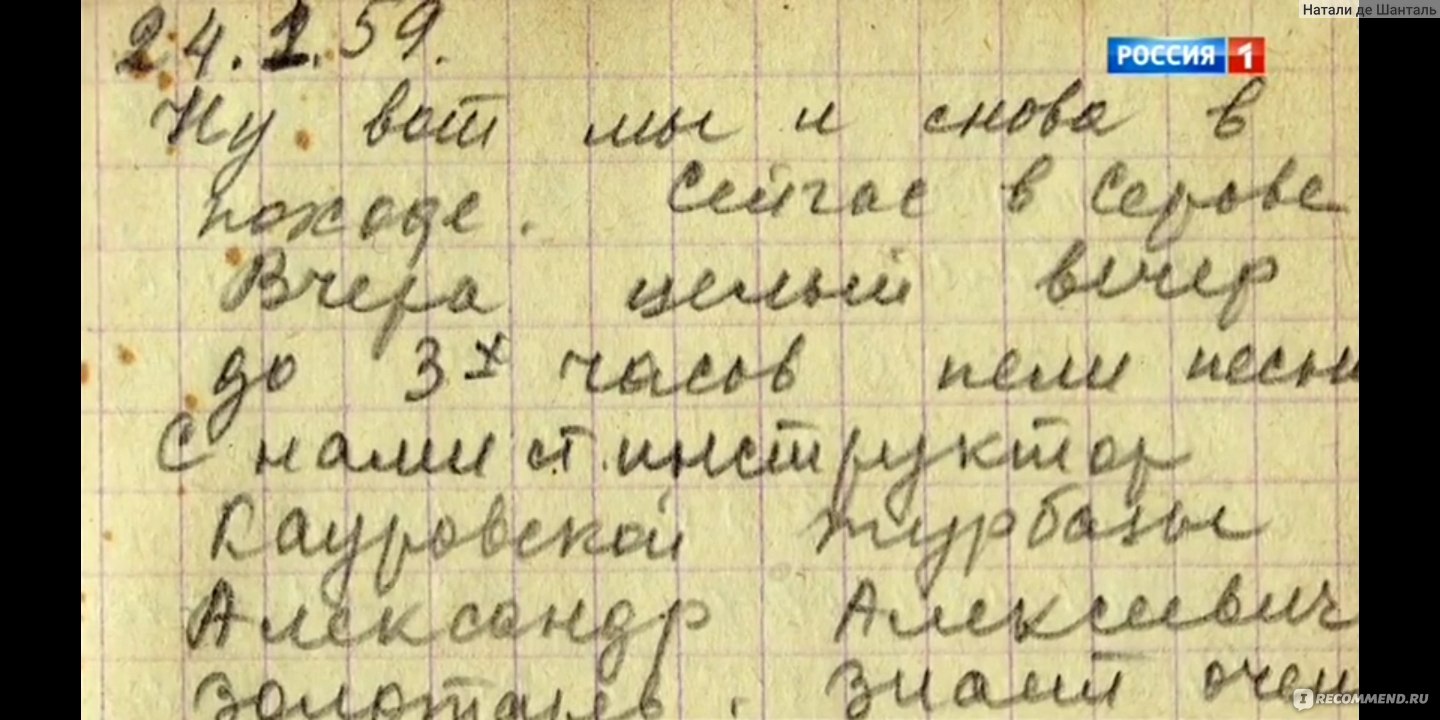 Натали де Шанталь
РОССИЯ 1
24.1.59.
Ну вот мы и снова в
походе. Сейчас в Серове
Вчера целый вечер
до 3х часов пели песни
С нами ст. инструктор
Кауровской турбазы
Александр Алексеевич
Золотарев. Знает очен
IRECOMMEND.RU